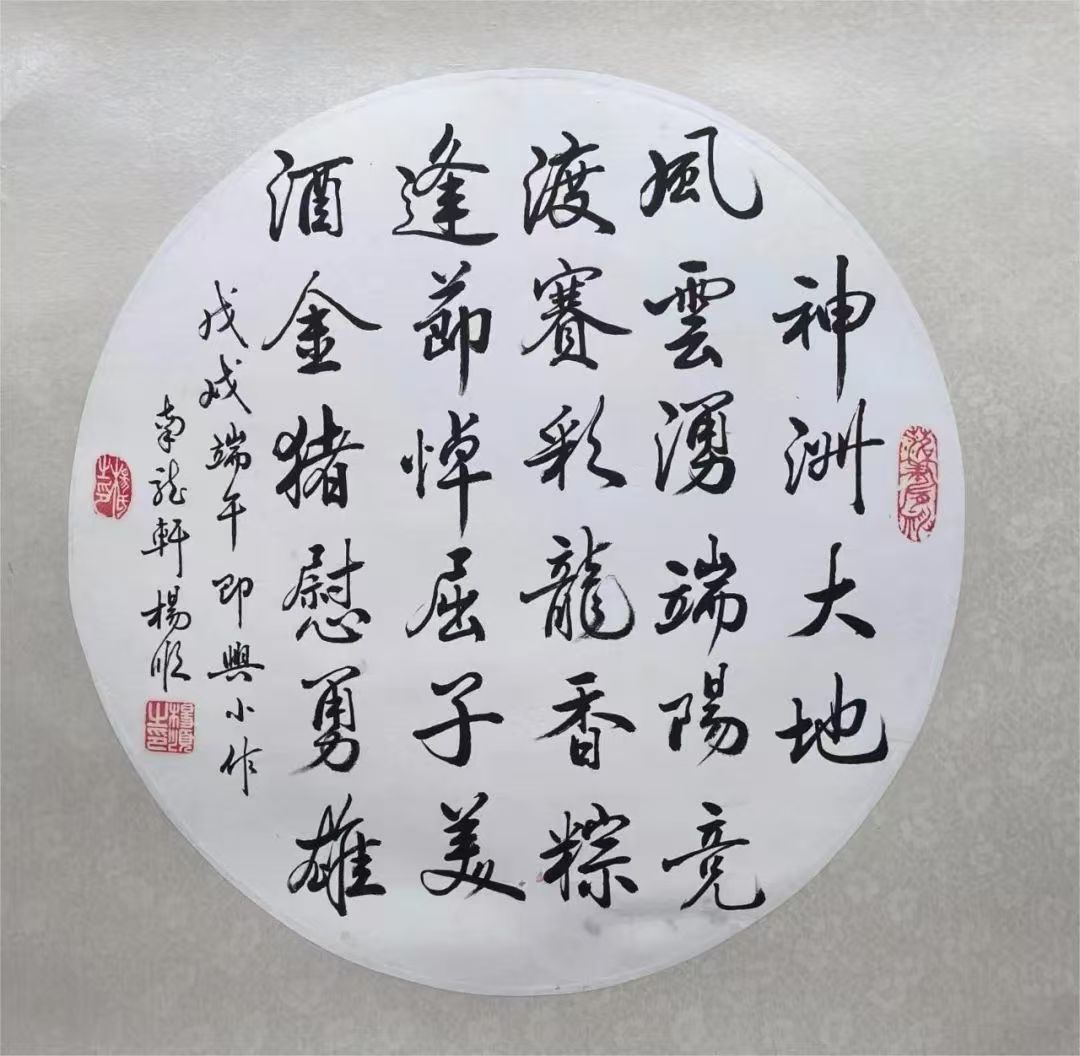 神洲大地
風雲湧端陽竞
渡賽彩龍香粽
逢節悼屈子美
酒金猪慰勇雄
戊戌端午即興小作
南龙軒楊順
楊順之印